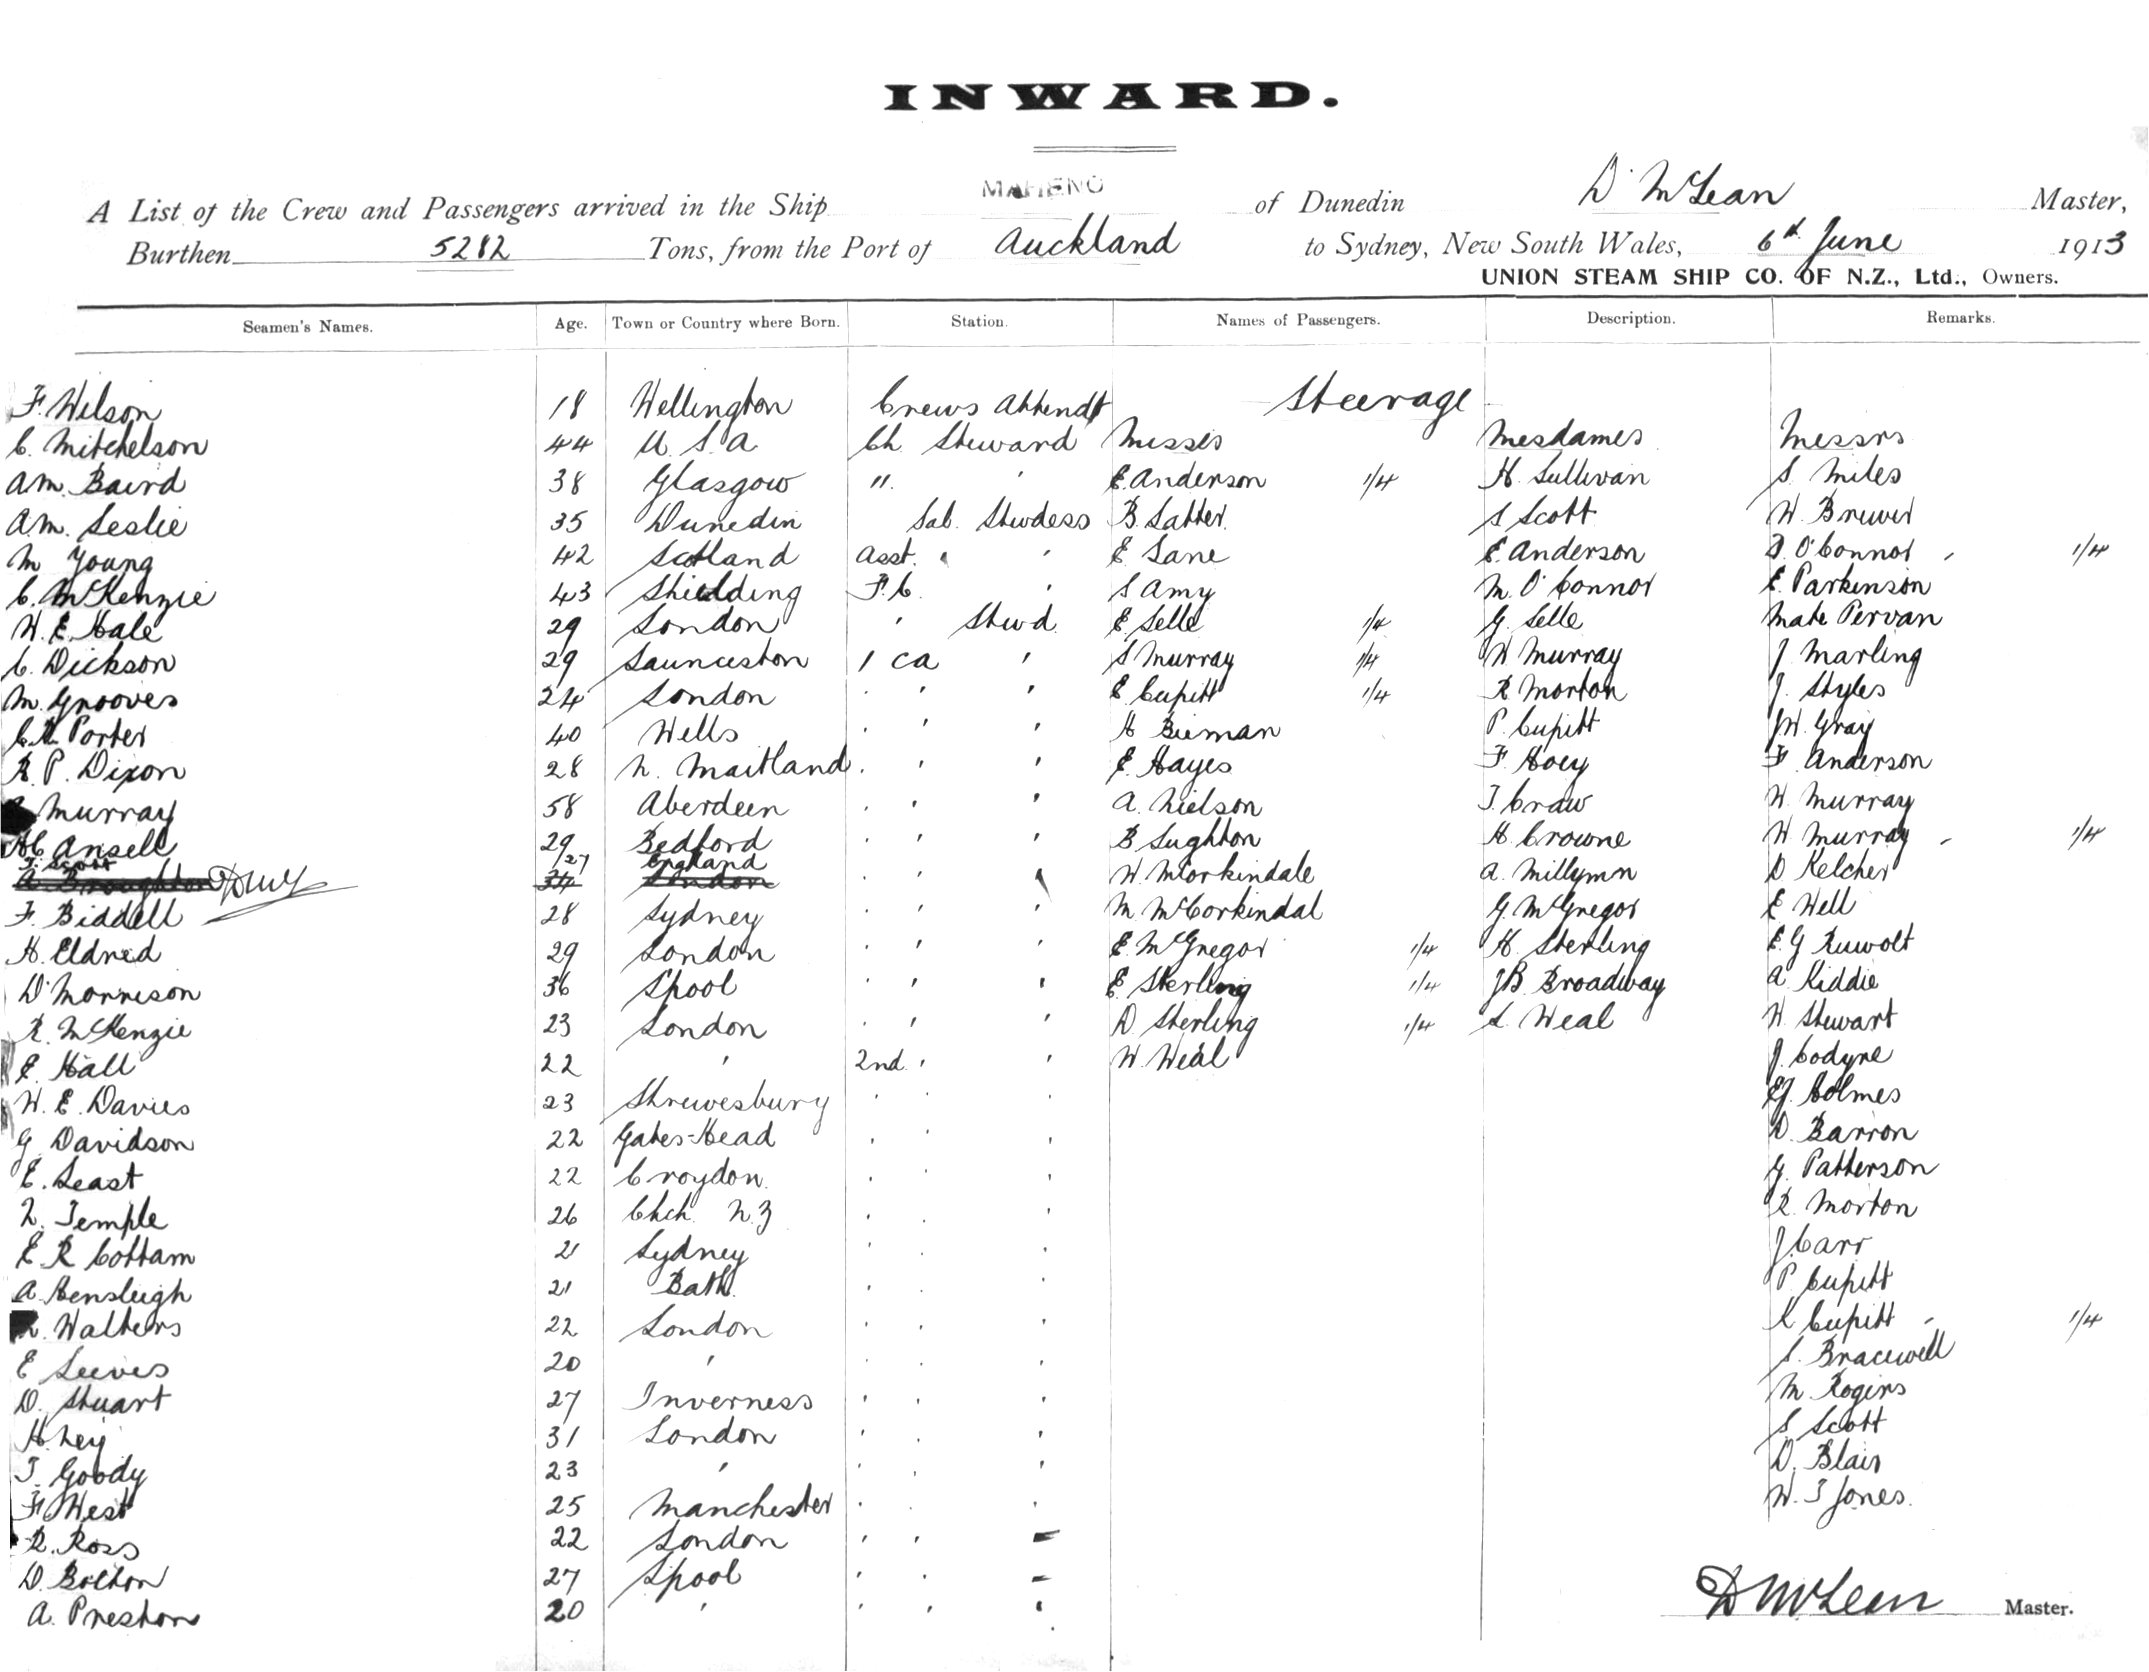 INWARD.
A List of the Crew and Passengers arrived in the Ship MAHENO of Dunedin D. McLean Master,
Burthen 5282 Tons, from the Port of Auckland to Sydney, New South Wales, 6th June 1913
UNION STEAM SHIP CO. OF N.Z., Ltd., Owners.
Seamen's Names. Age. Town or Country where Born. Station. Names of Passengers. Description. Remarks.
F. Wilson 18 Wellington Crews Attendt Steerage
C. Mitchelson 44 U.S.A Ch Steward Misses Mesdames Messrs
A.M. Baird 38 Glasgow " ' E. Anderson 1/4 H. Sullivan S. Miles
A.M. Leslie 35 Dunedin Sal. Stwdess B. Latter S Scott W Brewer
M Young 42 Scotland Asst. ' ' E Lane E. Anderson O'Connor 1/4
C. McKenzie 43 Shielding F.C. ' S Amy M. O'Connor E Parkinson
W. E. Hale 29 London ' Stwd. E Selle 1/4 G. Selle Mate Pervan
C. Dickson 29 Launceston 1 ca ' S Murray 1/4 W Murray J Marling
M. Grooves 24 London ' ' ' E Cupitt 1/4 R Morton J. Styles
Porter 40 Wells ' ' ' H Bieman P. Cupitt J.W. Gray
R. P. Dixon 28 N. Maitland ' ' ' E. Hayes F Hoey F. Anderson
Murray 58 Aberdeen ' ' ' A. Nielson T. Craw W. Murray
HC Ansell 29 Bedford ' ' ' B Lughton H Crowne W Murray 1/4
F. Scott 27 England
A Broughton 34 London ' W. McCorkindale A. Millymn D Kelcher
F. Biddell 28 Sydney ' ' ' M McCorkindal G. McGregor E Well
H. Eldred 29 London ' ' ' E. McGregor 1/4 H Sterling E.G Ruwolt
D Morrison 36 Lpool ' ' ' E Sterling 1/4 J.B. Broadway A Kiddie
R. McKenzie 23 London ' ' ' D Sterling 1/4 L. Weal W Stewart
E. Hall 22 ' 2nd ' ' W. Weal J. Codyre
W. E. Davies 23 Shrewsbury ' ' ' E.J. Holmes
G. Davidson 22 Gates-Head ' ' ' D. Barron
E. Least 22 Croydon ' ' ' G. Patterson
Temple 26 Chch N.Z ' ' ' R. Morton
E. R Cottam 21 Sydney ' ' ' J. Carr
A. Hensleigh 21 Bath ' ' ' P Cupitt
Walters 22 London ' ' ' K Cupitt 1/4
E Leeves 20 ' ' ' ' S. Bracewell
D. Stuart 27 Inverness ' ' ' M Rogers
H. Ley 31 London ' ' ' S Scott
T. Goody 23 ' ' ' ' D. Blair
F West 25 Manchester ' ' ' W. T Jones
R. Ross 22 London ' '
D. Bolton 27 Lpool ' '
A. Preston 20 ' ' ' '
D McLean Master.